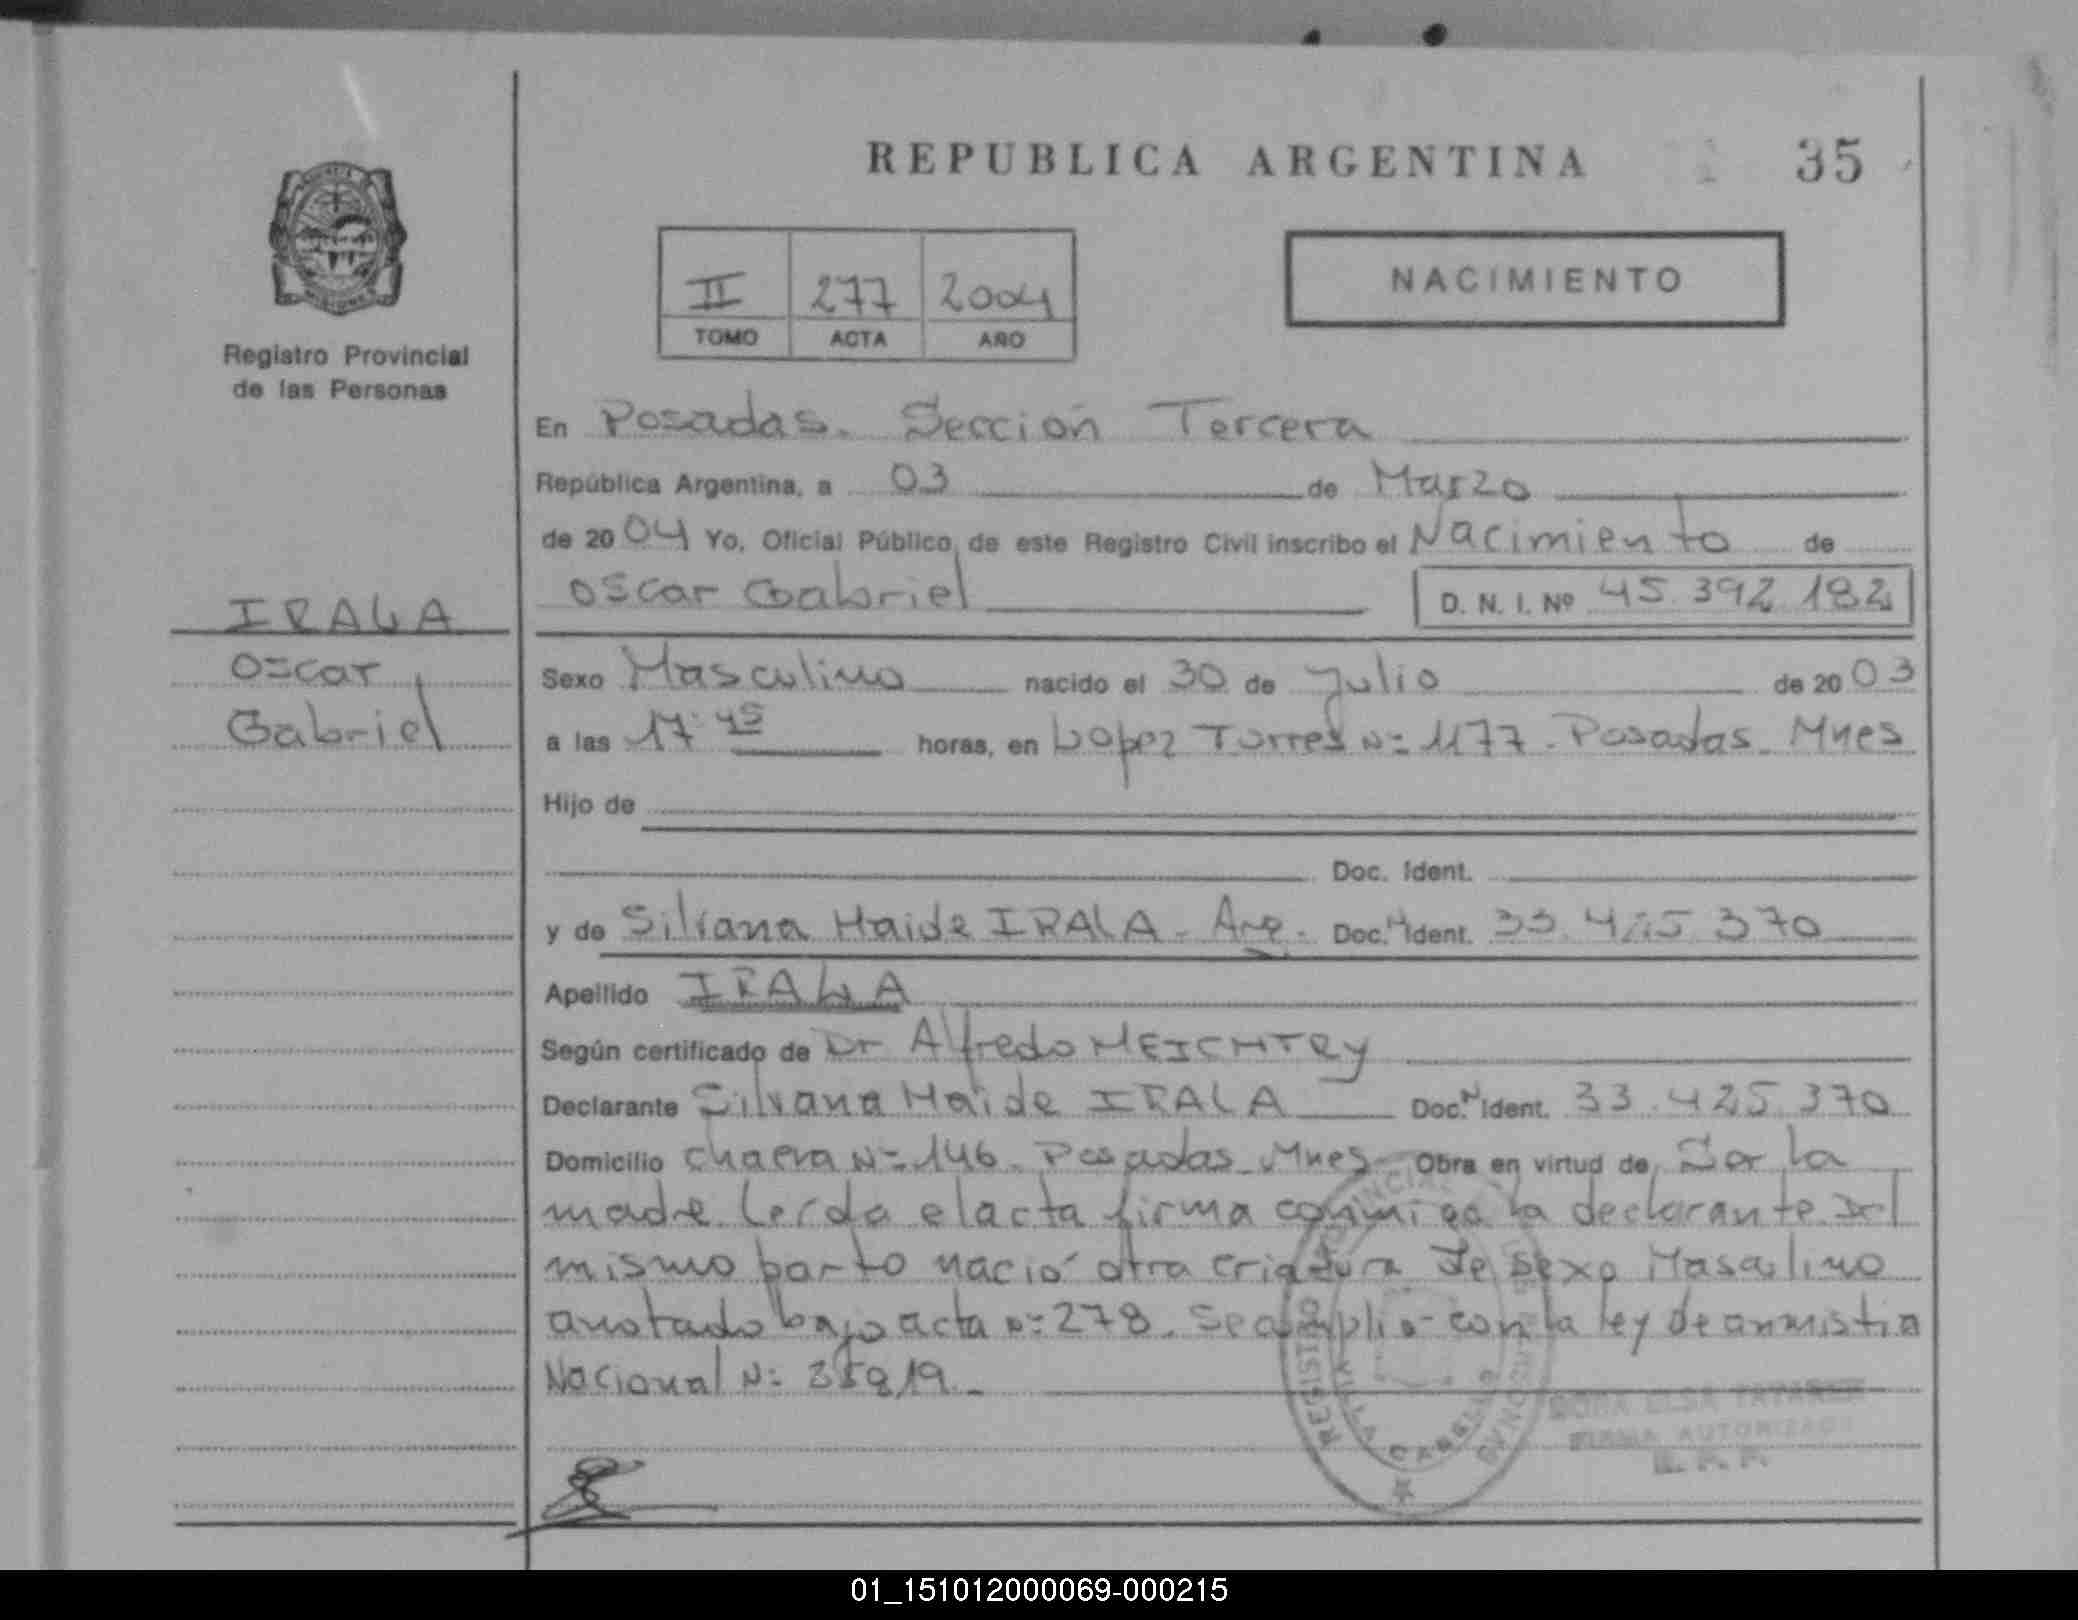 REPUBLICA ARGENTINA
35
II 277 2004
TOMO ACTA AÑO
NACIMIENTO
Registro Provincial
de las Personas
En Posadas. Sección Tercera
República Argentina, a 03 de Marzo
de 2004 Yo, Oficial Público, de este Registro Civil inscribo el Nacimiento de
Oscar Gabriel D. N. I. Nº 45.392.182
IRALA
Oscar
Gabriel
Sexo Masculino nacido el 30 de Julio de 2003
a las 17:45 horas, en Lopez Torres Nº 1177. Posadas. Mnes
Hijo de
Doc. Ident.
y de Silvana Haide IRALA - Arg. Doc. Ident. 33.425.370
Apellido IRALA
Según certificado de Dr Alfredo MEICHTRY
Declarante Silvana Haide IRALA Doc. Ident. 33.425.370
Domicilio chacra Nº 146. Posadas. Mnes - Obra en virtud de Ser la
madre. Leída el acta firma conmigo la declarante. Del
mismo parto nació otra criatura de sexo Masculino
anotado bajo acta nº 278. Se cumplió con la ley de anmistia
Nacional Nº 25819.-
REGISTRO PROVINCIAL DE LAS PERSONAS
VILLA CABELLO
FIRMA AUTORIZADA
R. P. P.
01_151012000069-000215